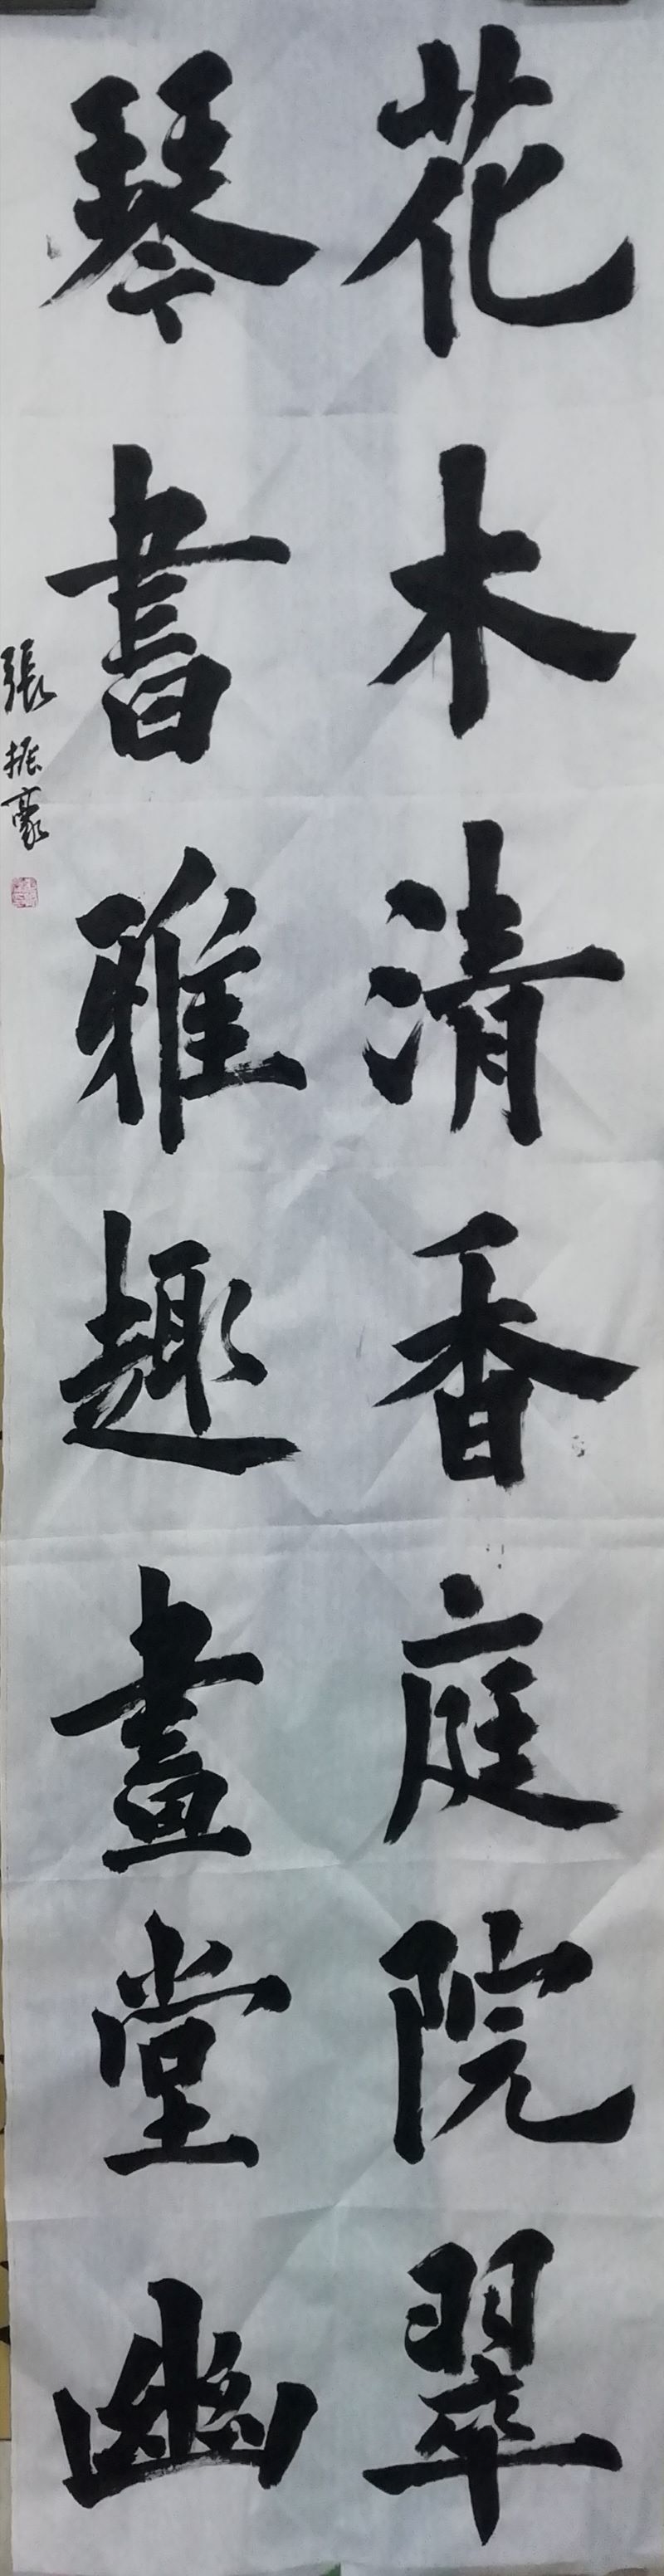 花木清香庭院翠
琴書雅趣畫堂幽
張振豪